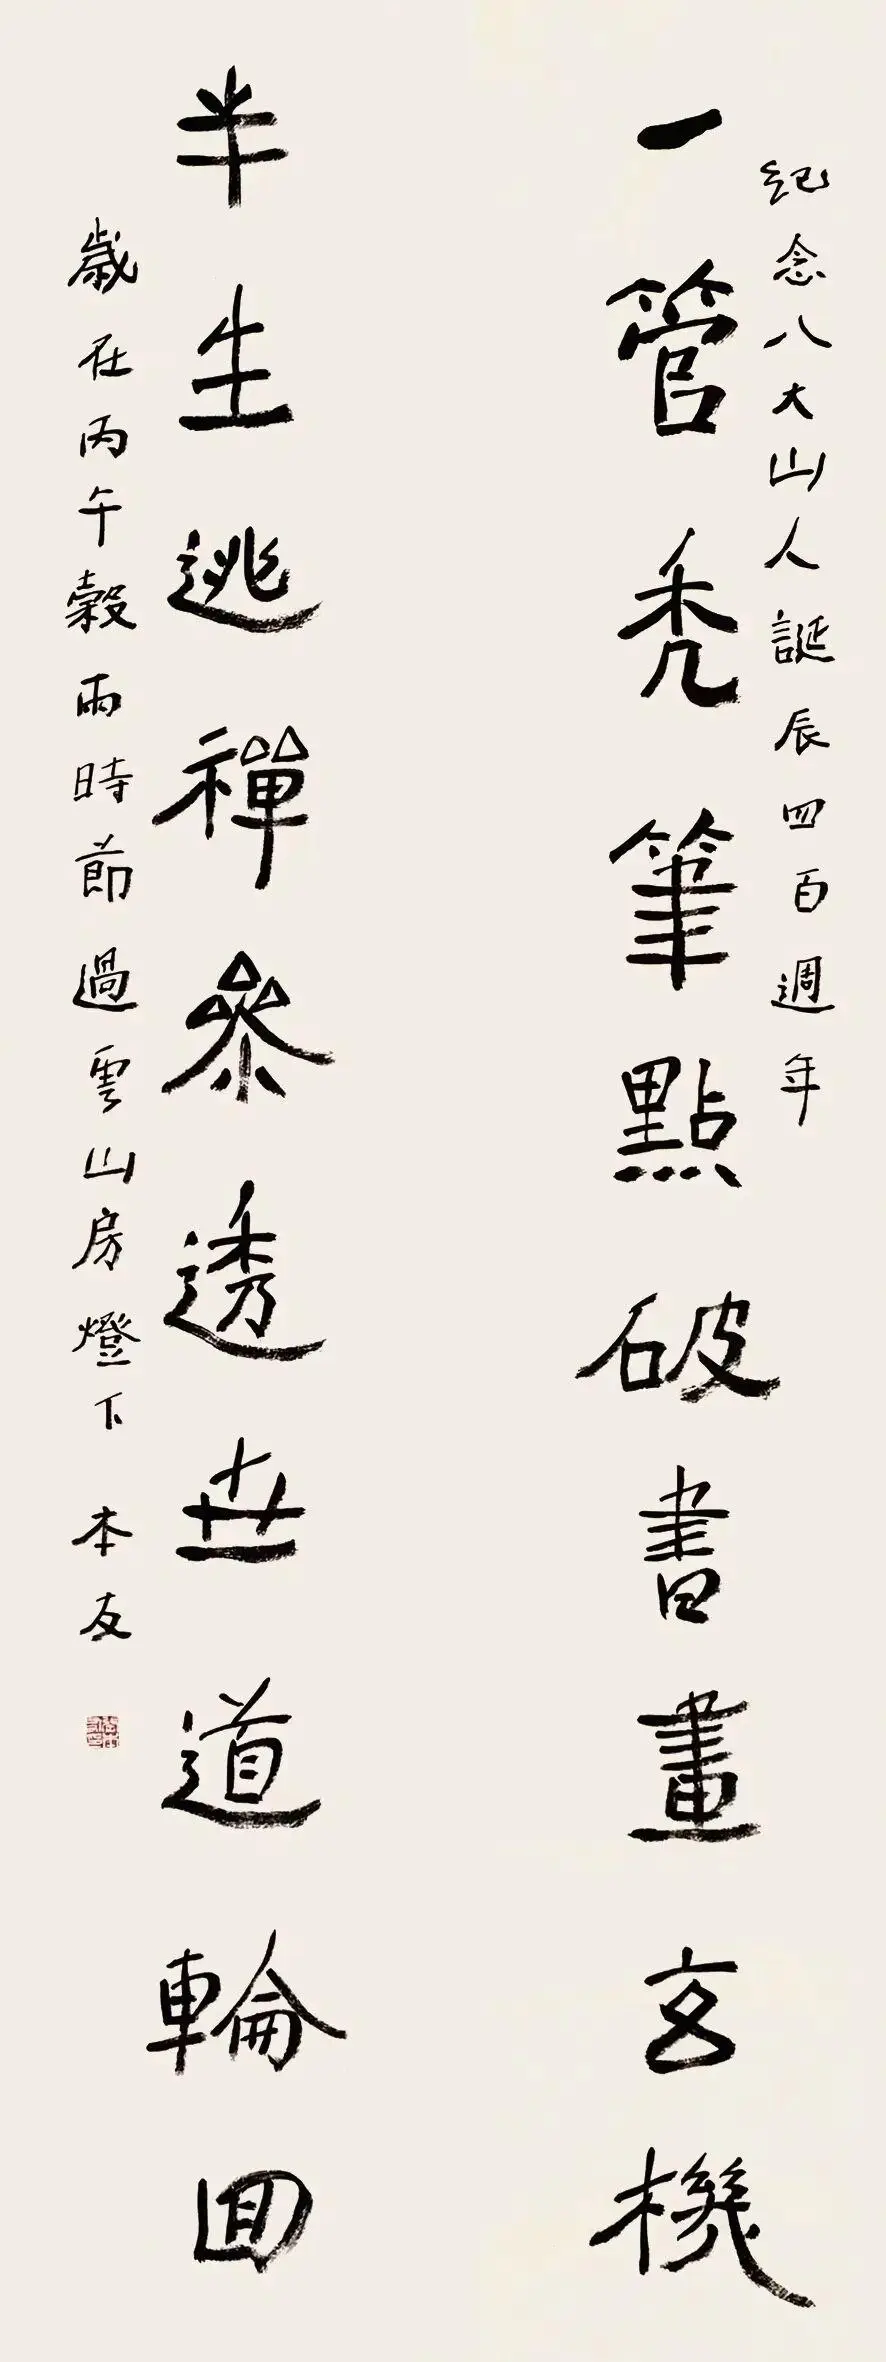 紀念八大山人誕辰四百週年
一管禿筆點破書畫玄機
半生逃禪參透世道輪回
歲在丙午穀雨時節過雲山房燈下 本友